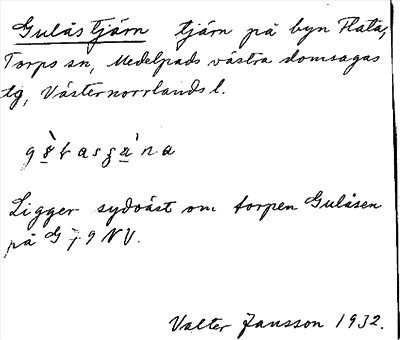 Gulåstjärn tjärn på byn Flata,
Torps sn, Medelpads västra domsagas
tg, Västernorrlands l.
Ligger sydväst om torpen Gulåsen
på G 79 NV.
Valter Jansson 1932.